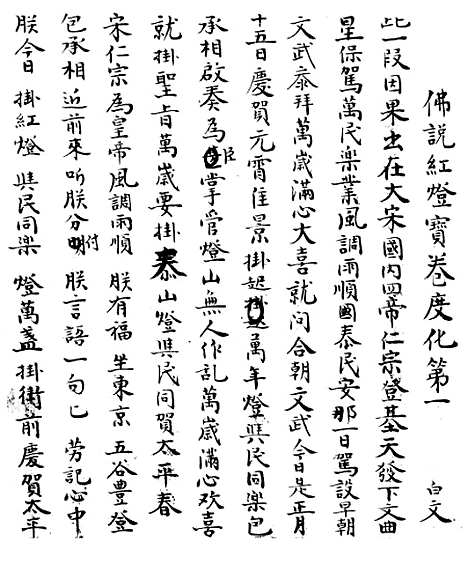 佛説紅燈寶卷度化第一　白文
此一段因果出在大宋國内四帝仁宗登基天發下文曲
星保駕萬民樂業風調雨順國泰民安那一日駕設早朝
文武叅拜萬歲滿心大喜就问合朝文武今日是正月
十五日慶賀元宵佳景掛起萬年燈與民同樂包
承相啟奏為臣掌管燈山無人作乱萬歲滿心欢喜
就掛聖旨萬歲要掛泰山燈與民同賀太平春
宋仁宗為皇帝風調雨順　朕有福　坐東京　五谷豊登
包承相　近前來　听朕分付　朕言語　一句匕　劳記心中
朕今日　掛紅燈　與民同樂　燈萬盞　掛街前　慶賀太年